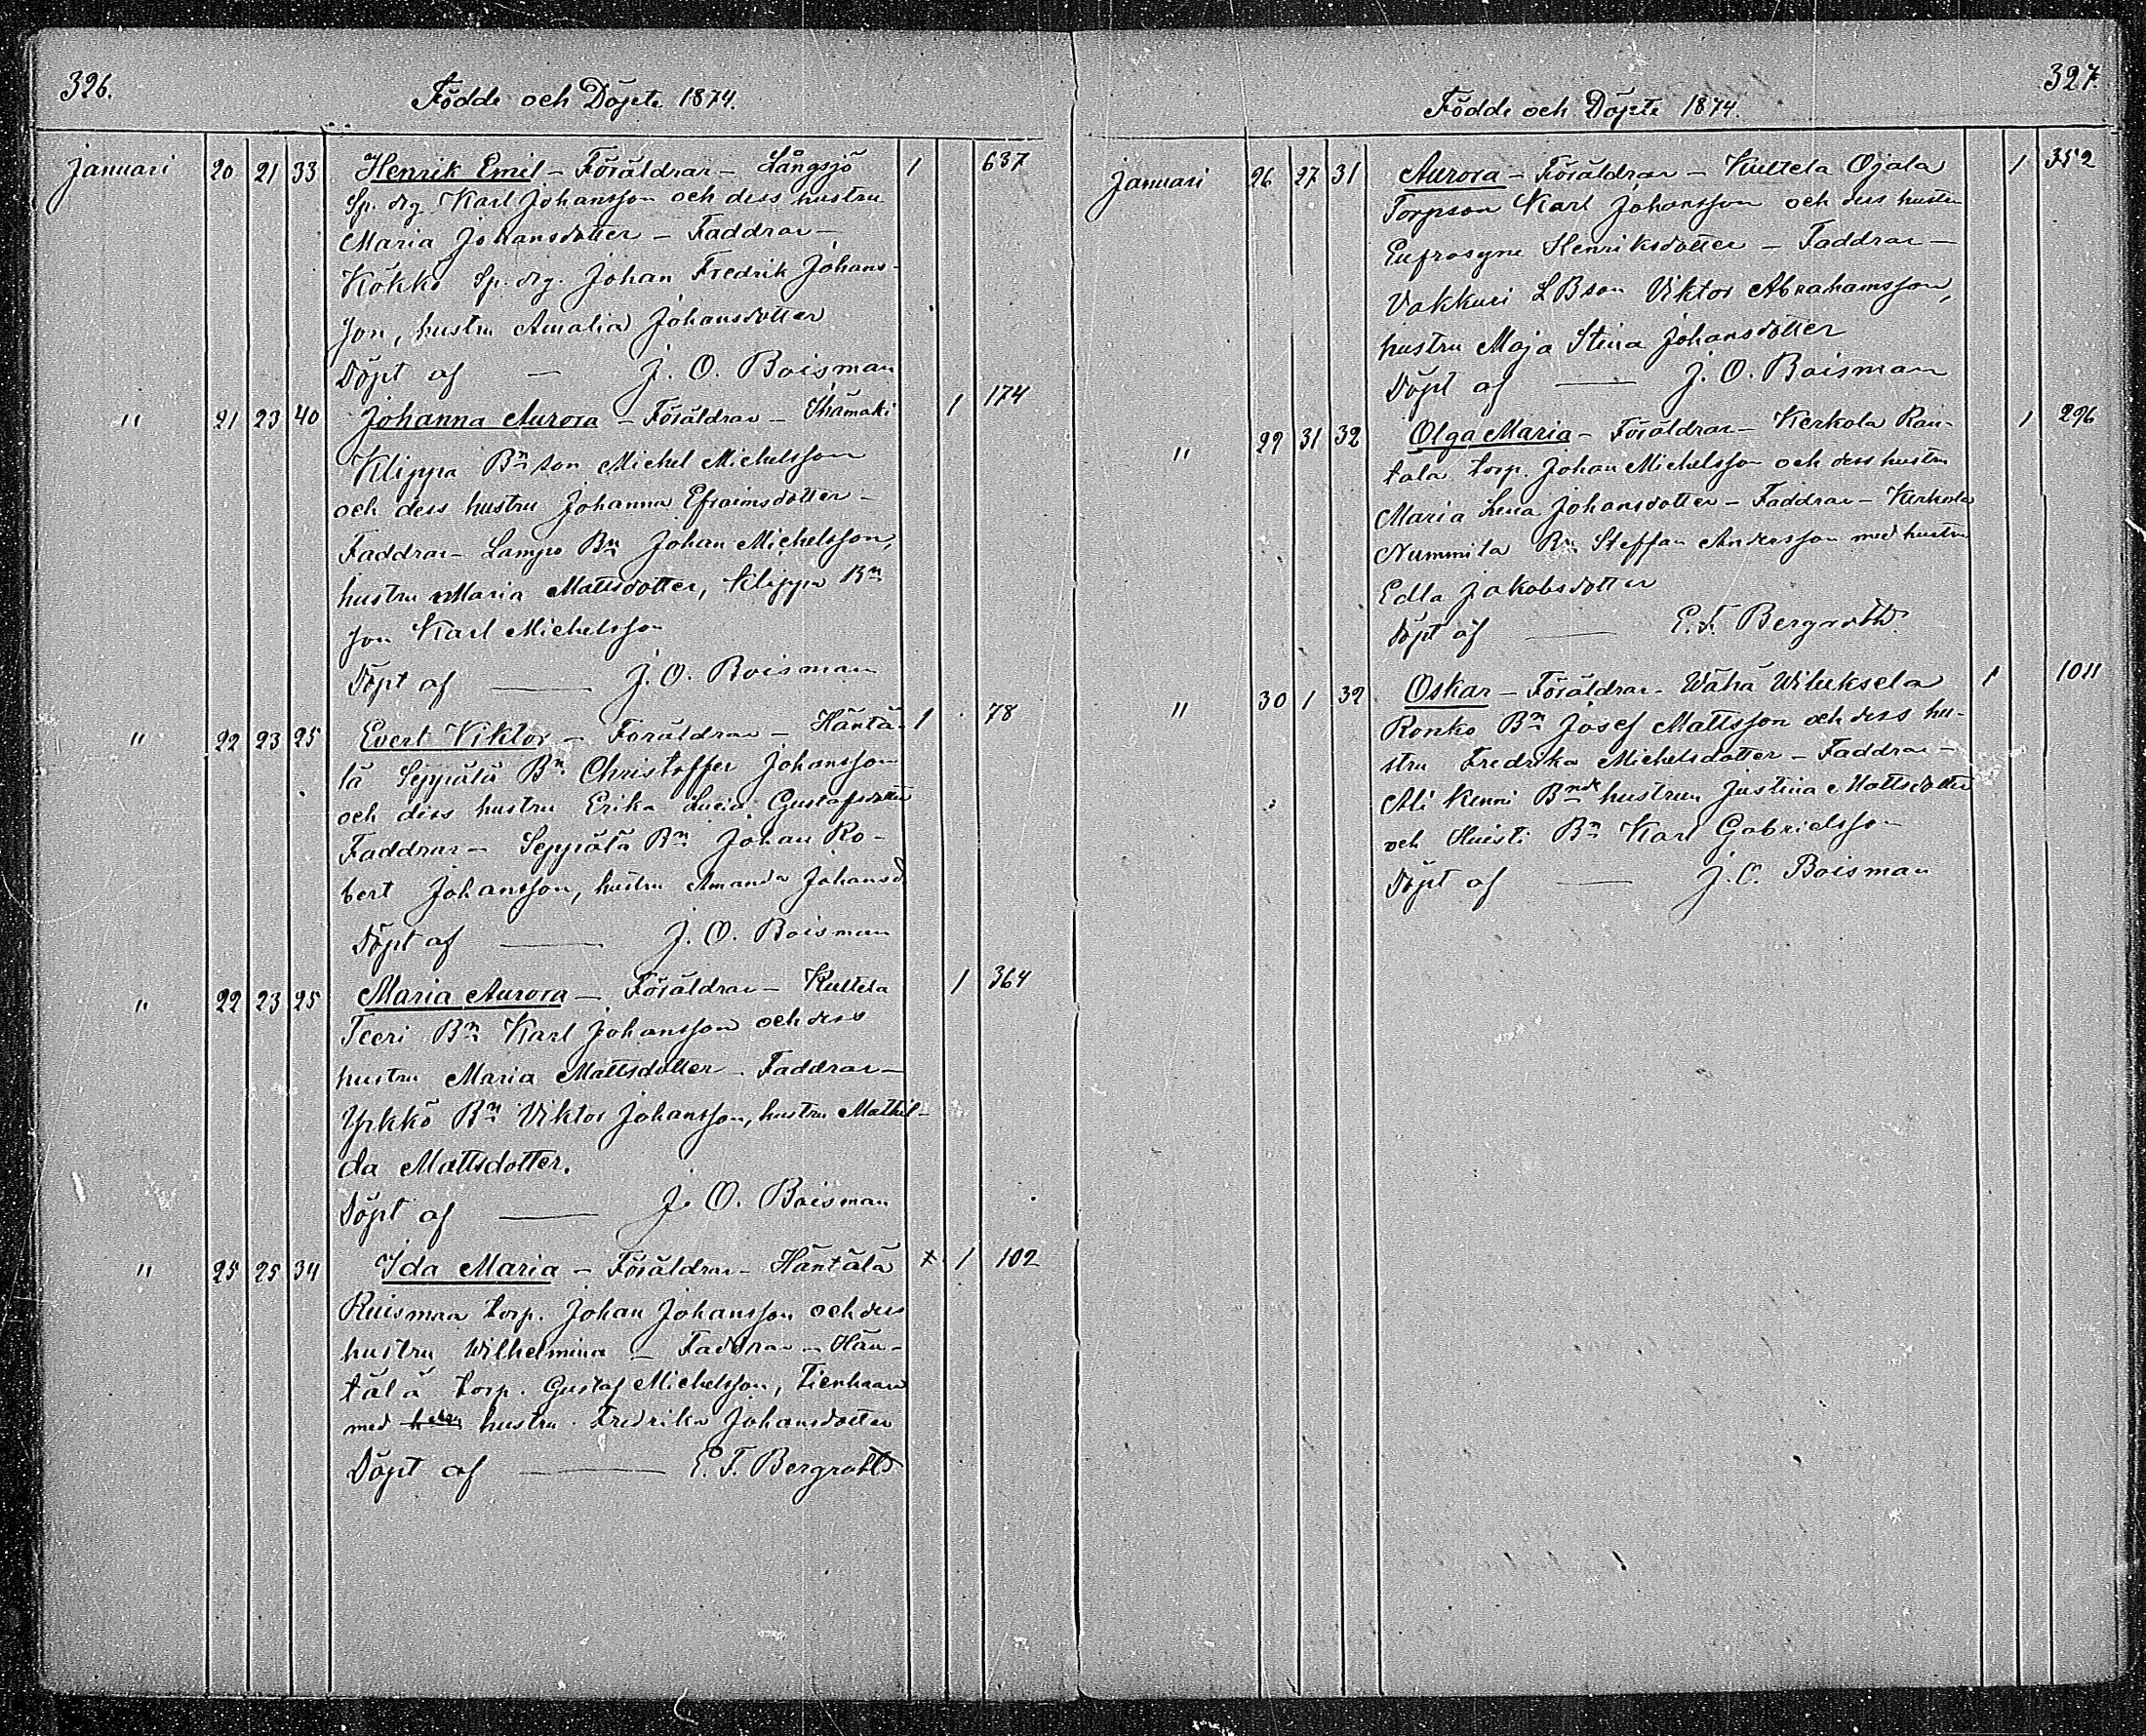 326.
Födde och Döpte 1874.
Januari 20 21 33 Henrik Emil – Föräldrar – Långsjö 1 637
Sp. drg. Karl Johansson och dess hustru
Maria Johansdotter – Faddrar –
Kökkö Sp. drg. Johan Fredrik Johans-
son, hustru Amalia Johansdotter
Döpt af — J. O. Boisman
" 21 23 40 Johanna Aurora – Föräldrar – Ihämäki 1 174
Klippa Bn son Michel Michelsson
och dess hustru Johanna Efraimsdotter –
Faddrar – Lampo Bn Johan Michelsson,
hustru Maria Mattsdotter, Klippa Bn
son Karl Michelsson
Döpt af — J. O. Boisman
" 22 23 25 Evert Viktor – Föräldrar – Häntä- 1 78
lä Seppälä Bn Christoffer Johansson
och dess hustru Erika Lucia Gustafsdotter
Faddrar – Seppälä Bn Johan Ro-
bert Johansson, hustru Amanda Johansd.
Döpt af — J. O. Boisman
" 22 23 25 Maria Aurora – Föräldrar – Kuttela 1 364
Teeri Bn Karl Johansson och dess
hustru Maria Mattsdotter – Faddrar –
Yrkkö Bn Viktor Johansson, hustru Mathil-
da Mattsdotter.
Döpt af — J. O. Boisman
" 25 25 34 Ida Maria – Föräldrar – Häntälä x 1 102
Ruismaa torp. Johan Johansson och dess
hustru Wilhelmina – Faddrar – Hän-
tälä torp. Gustaf Michelsson, Tienhaara
med hustru Fredrika Johansdotter
Döpt af — E. F. Bergroth
327.
Födde och Döpte 1874.
Januari 26 27 31 Aurora – Föräldrar – Kuttela Ojala 1 352
Torpson Karl Johansson och dess hustru
Eufrosyne Henriksdotter – Faddrar –
Vakkuri LBson Viktor Abrahamsson,
hustru Maja Stina Johansdotter
Döpt af — J. O. Boisman
" 29 31 32 Olga Maria – Föräldrar – Kerkola Rau- 1 296
tala torp. Johan Michelsson och dess hustru
Maria Lena Johansdotter – Faddrar – Kerkola
Nummila Bn Steffan Andersson med hustru
Edla Jakobsdotter
Döpt af — E. F. Bergroth
" 30 1 32 Oskar – Föräldrar – Wähä Wiluksela 1 1011
Ronko Bn Josef Mattsson och dess hu-
stru Fredrika Michelsdotter – Faddrar –
Ali Kinni Bnde hustrun Justina Mattsdotter
och Huisti Bn Karl Gabrielsson
Döpt af — J. O. Boisman